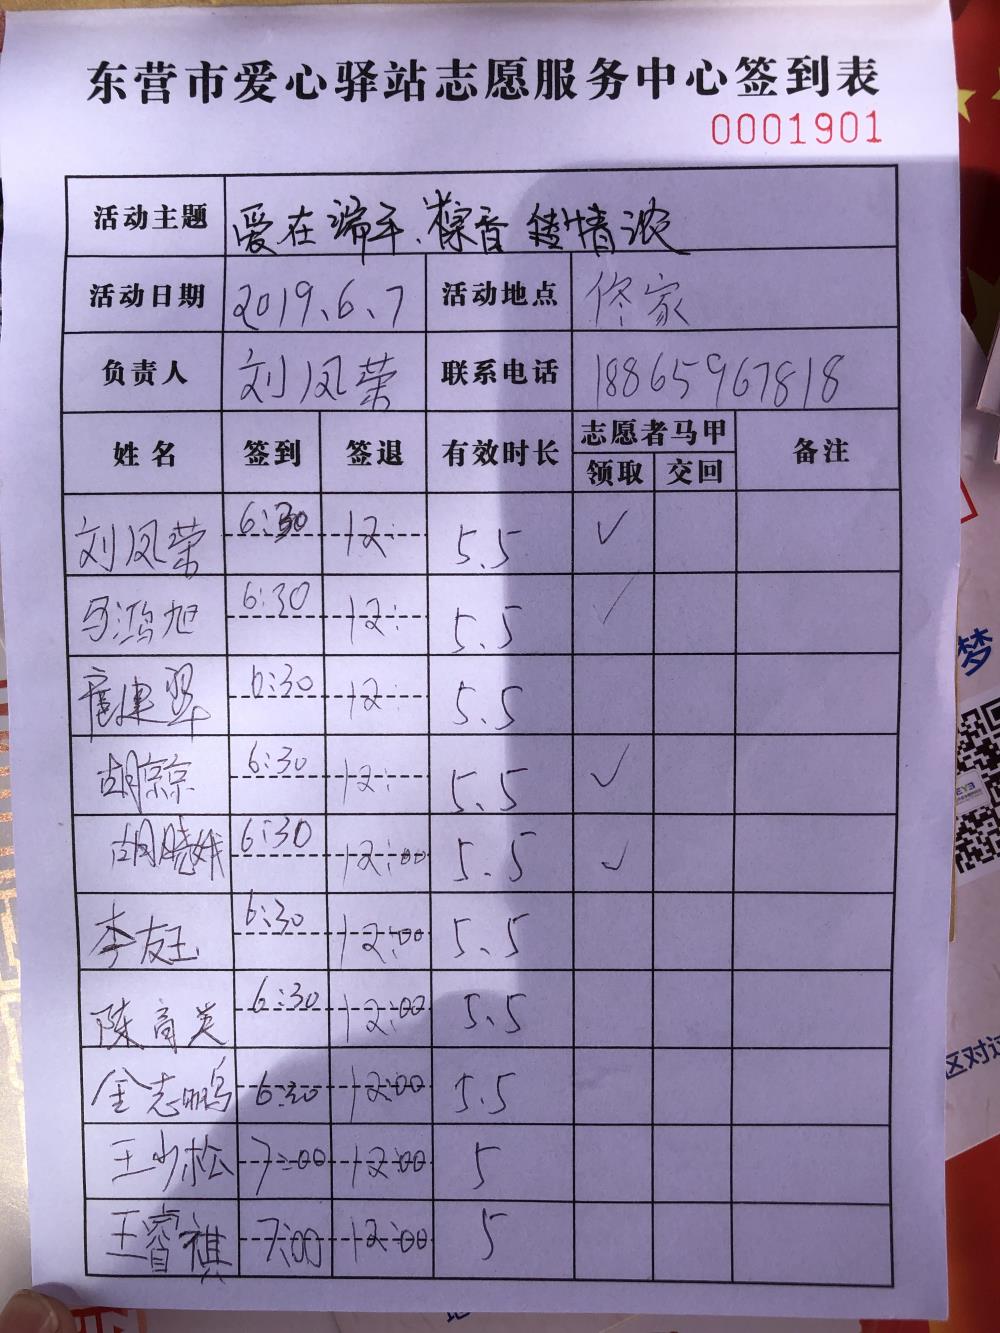 东营市爱心驿站志愿服务中心签到表
0001901
活动主题 爱在端午、粽香 情浓
活动日期 2019、6、7 活动地点 佟家
负责人 刘凤荣 联系电话 18865967818
姓名 签到 签退 有效时长 志愿者马甲 备注
领取 交回
刘凤荣 6:30 12: 5.5 ✓
马鸿旭 6:30 12: 5.5 ✓
建翠 6:30 12: 5.5
胡京京 6:30 12: 5.5 ✓
胡晓娥 6:30 12:00 5.5 ✓
李友玉 6:30 12:00 5.5
陈育英 6:30 12:00 5.5
金志鹏 6:30 12:00 5.5
王少松 7:00 12:00 5
王睿祺 7:00 12:00 5
梦
区对